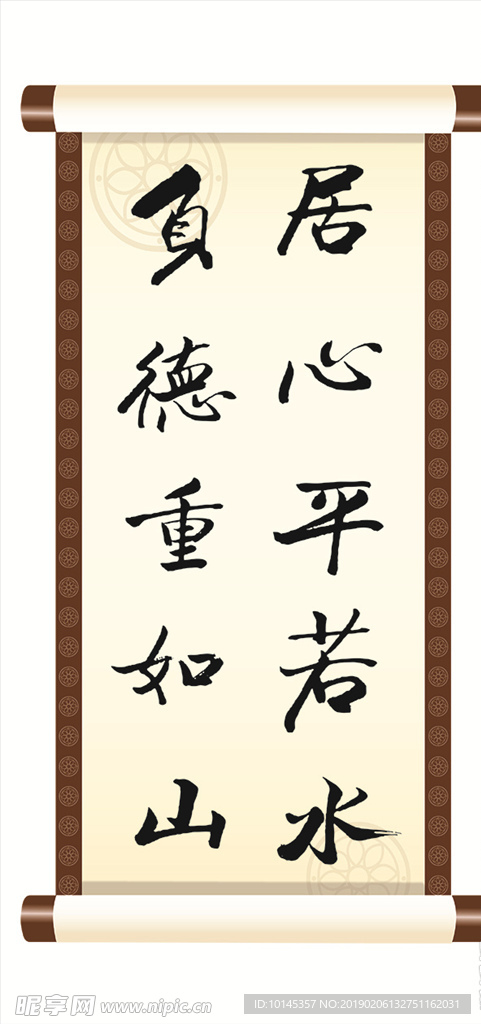 居心平若水
德重如山
昵享网 www.nipic.cn
ID:10145357 NO:20190206132751162031